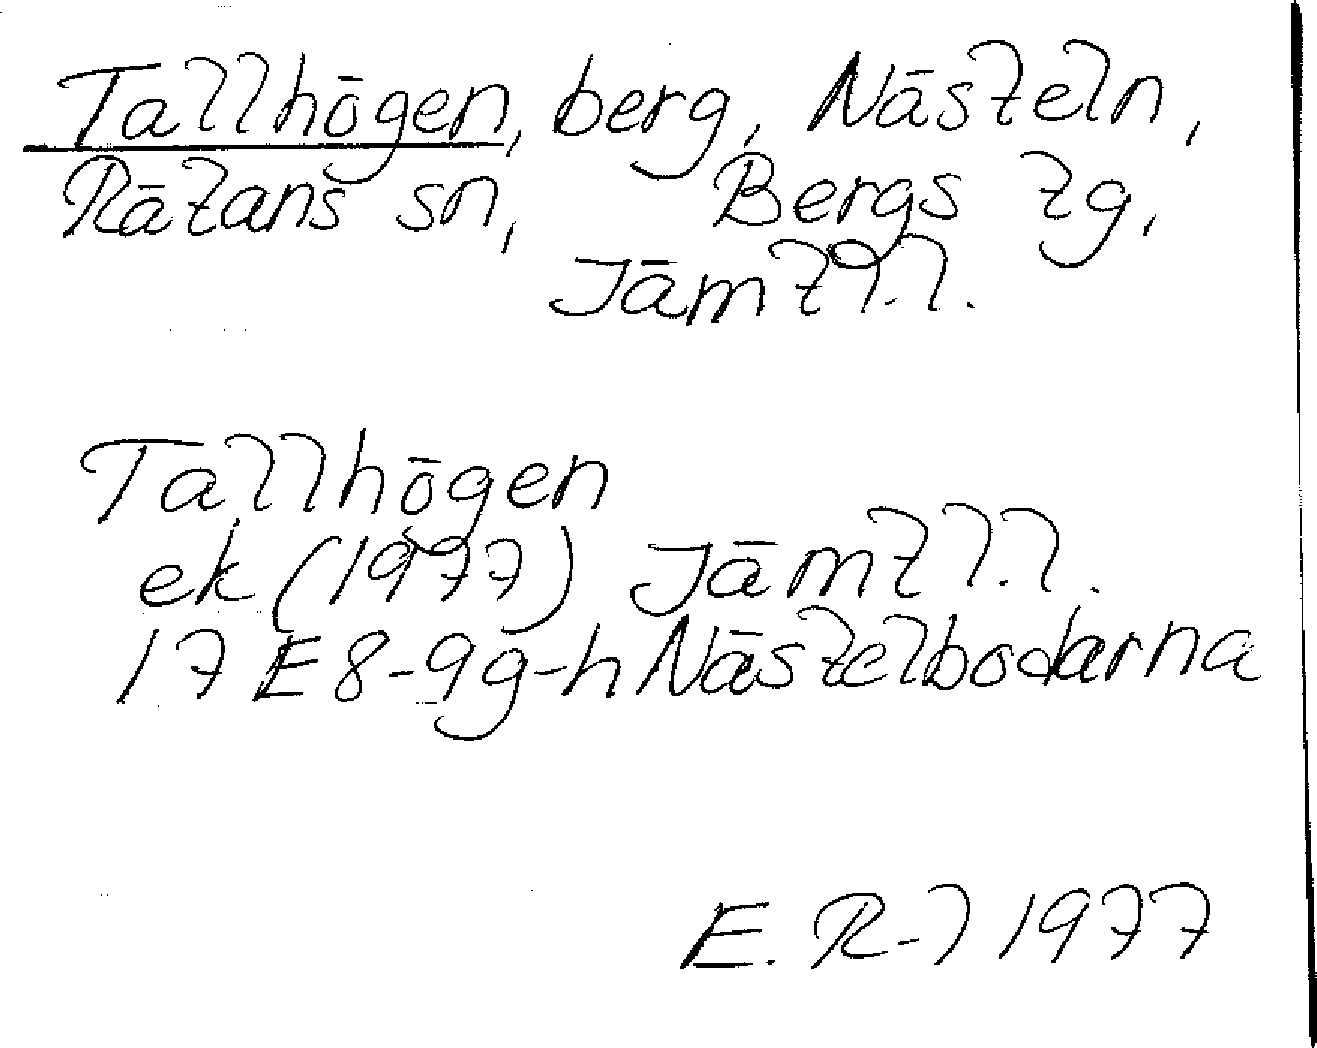 Tallhögen, berg, Nästeln,
Rätans sn, Bergs tg,
Jämtl.
Tallhögen
ek (1977) Jämtl.
17E8-9g-h Nästelbodarna
E. R-l 1977